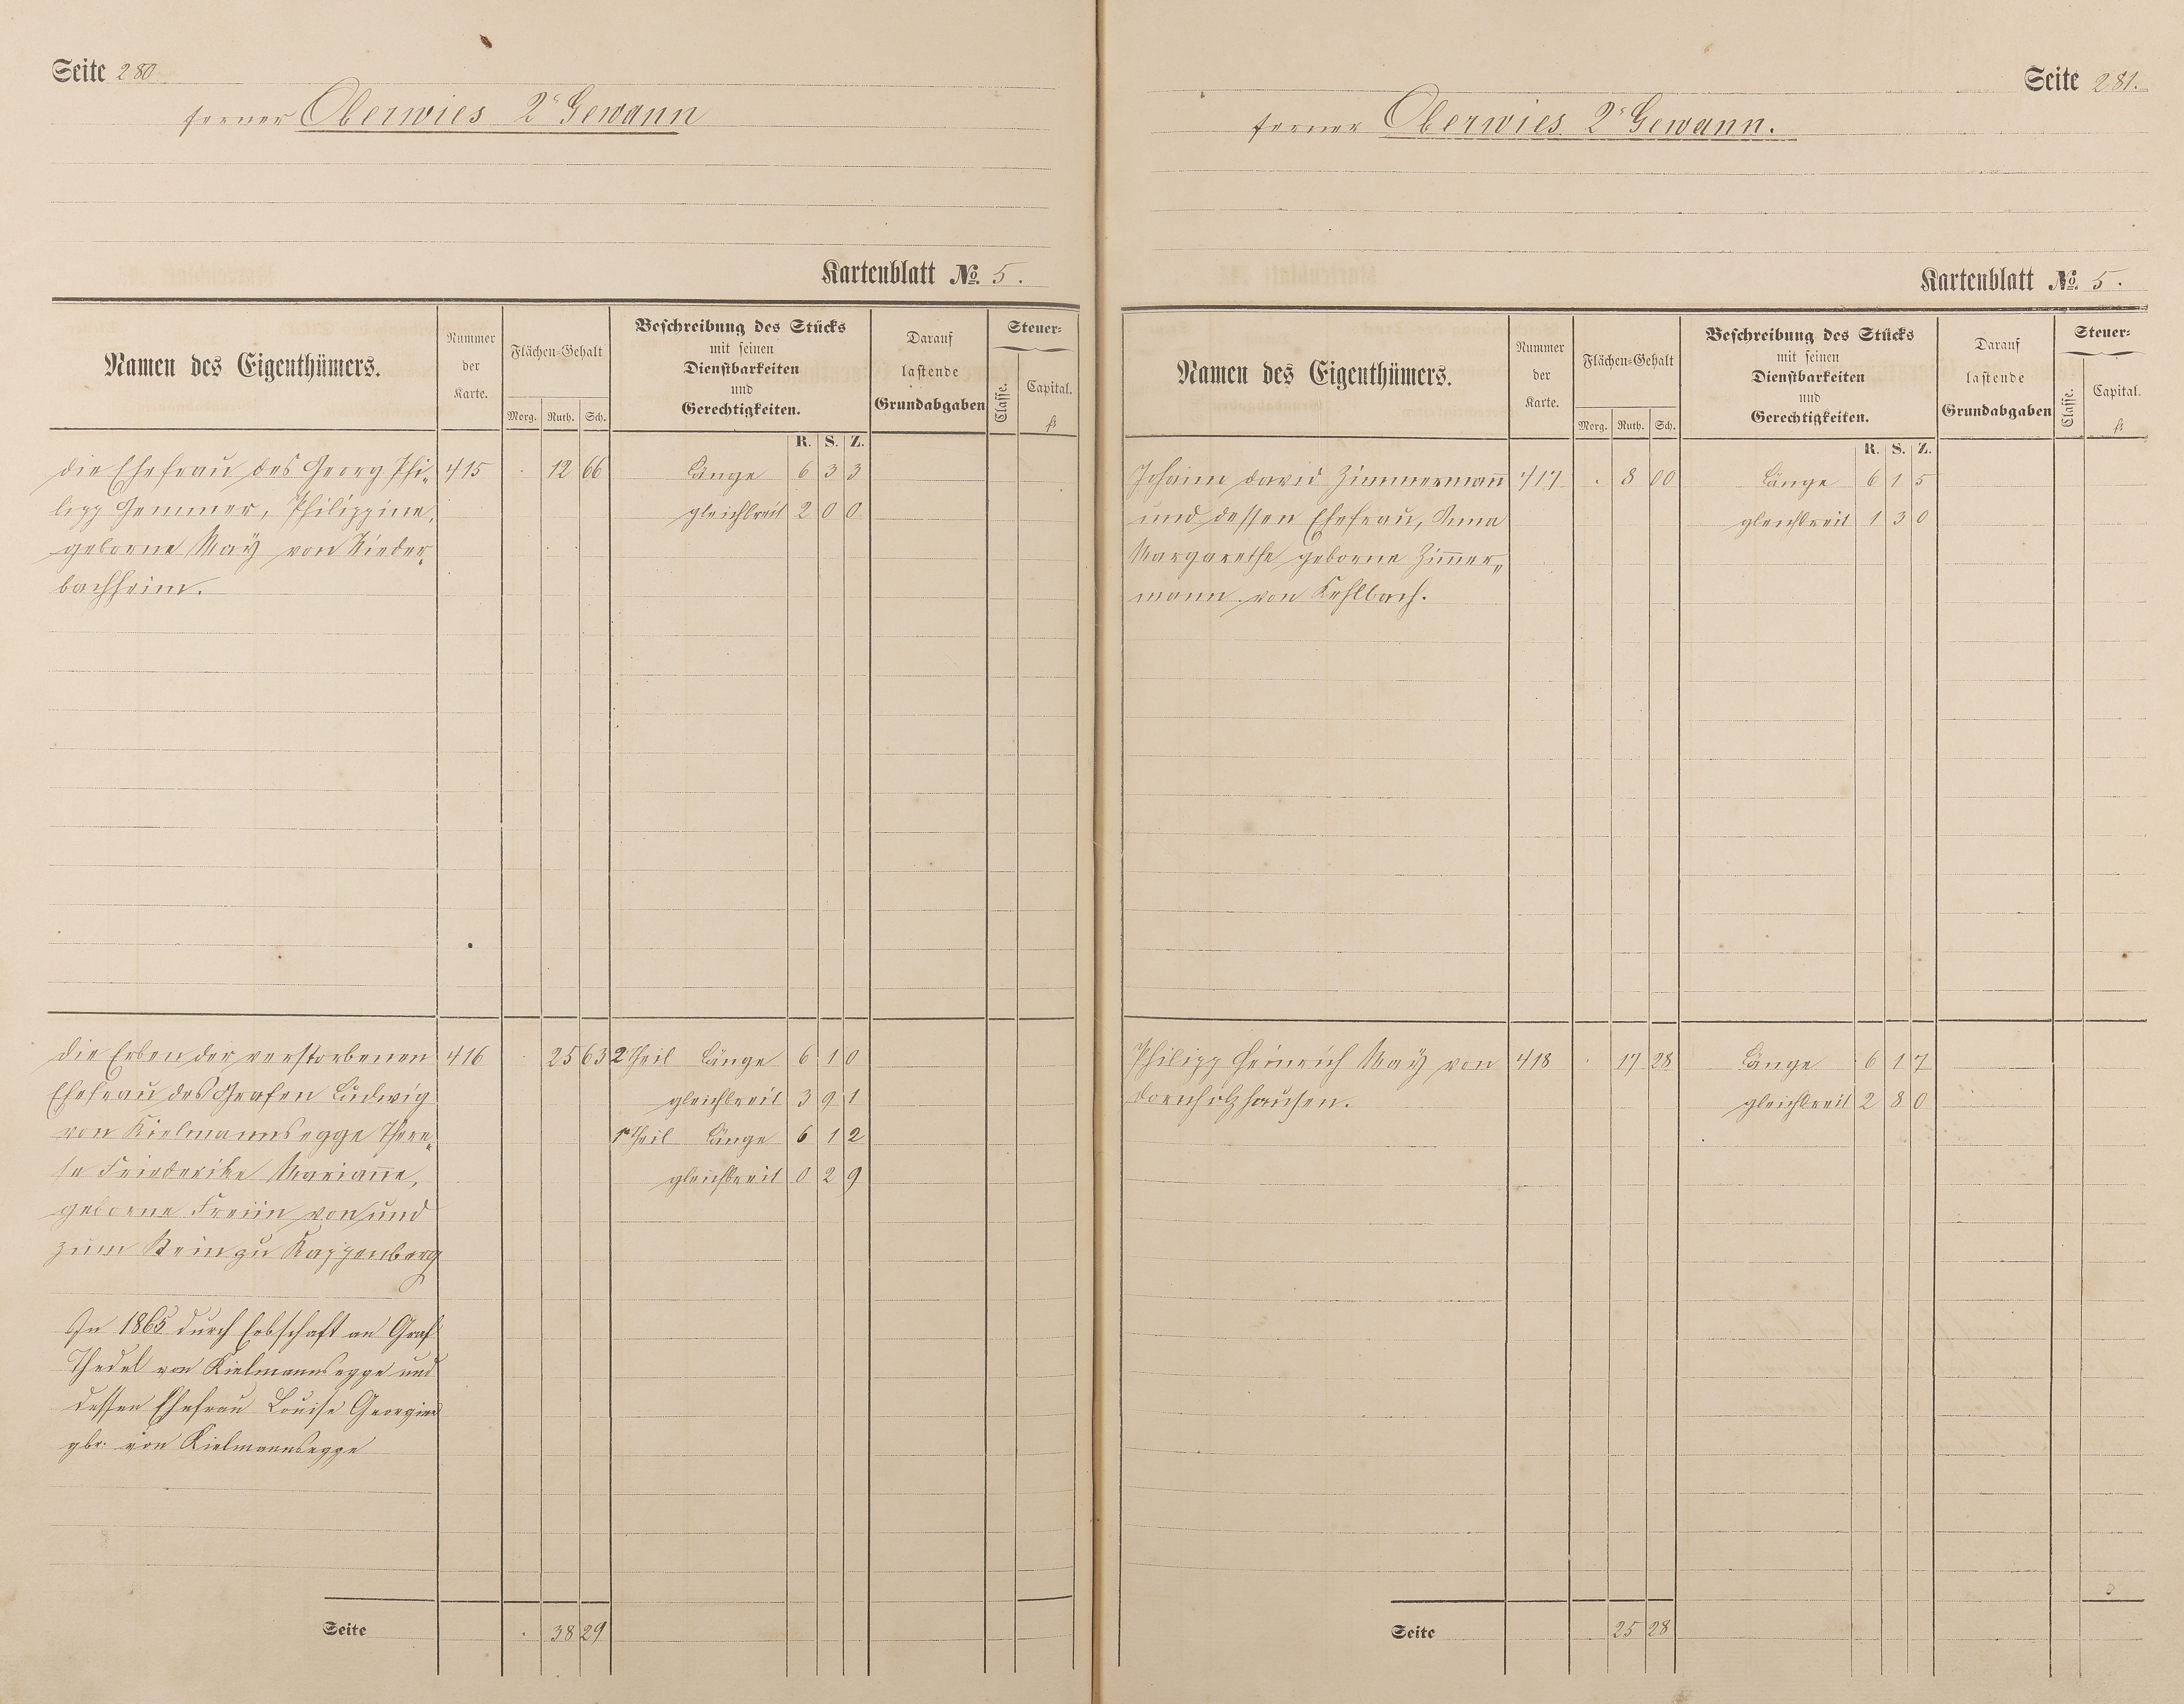 Seite 280
ferner Oberwies 2r Gewann
Kartenblatt No. 5.
Namen des Eigenthümers.
Nummer
der
Karte.
Flächen-Gehalt
Morg. Ruth. Sch.
Beschreibung des Stücks
mit seinen
Dienstbarkeiten
und
Gerechtigkeiten.
Darauf
lastende
Grundabgaben
Steuer-
Classe.
Capital.
fl
R. S. Z.
die Ehefrau des Georg Phi- 415 . 12 66 Länge 6 3 3
lipp Gemmer, Philippine, gleichbreit 2 0 0
geborne May von Nieder-
bachheim.
die Erben der verstorbenen 416 . 25 63 2r Theil Länge 6 1 0
Ehefrau des Grafen Ludwig gleichbreit 3 9 1
von Kielmannsegge There- 1r Theil Länge 6 1 2
se Friederike Marian̄e, gleichbreit 0 2 9
geborne Freiin von und
zum Stein zu Kappenberg
In 1865 durch Erbschaft an Graf
Thedel von Kielmannsegge und
dessen Ehefrau Louise Georgine
gbr. von Kielmannsegge
Seite . 38 29
Seite 281.
ferner Oberwies 2r Gewann.
Kartenblatt No. 5.
Namen des Eigenthümers.
Nummer
der
Karte.
Flächen-Gehalt
Morg. Ruth. Sch.
Beschreibung des Stücks
mit seinen
Dienstbarkeiten
und
Gerechtigkeiten.
Darauf
lastende
Grundabgaben
Steuer-
Classe.
Capital.
fl
R. S. Z.
Johann David Zimmerman̄ 417 . 8 00 Länge 6 1 5
und dessen Ehefrau, Anna gleichbreit 1 3 0
Margarethe geborne Zim̄er-
mann von Kehlbach.
Philipp Heinrich May von 418 . 17 28 Länge 6 1 7
Dornholzhausen. gleichbreit 2 8 0
Seite 25 28